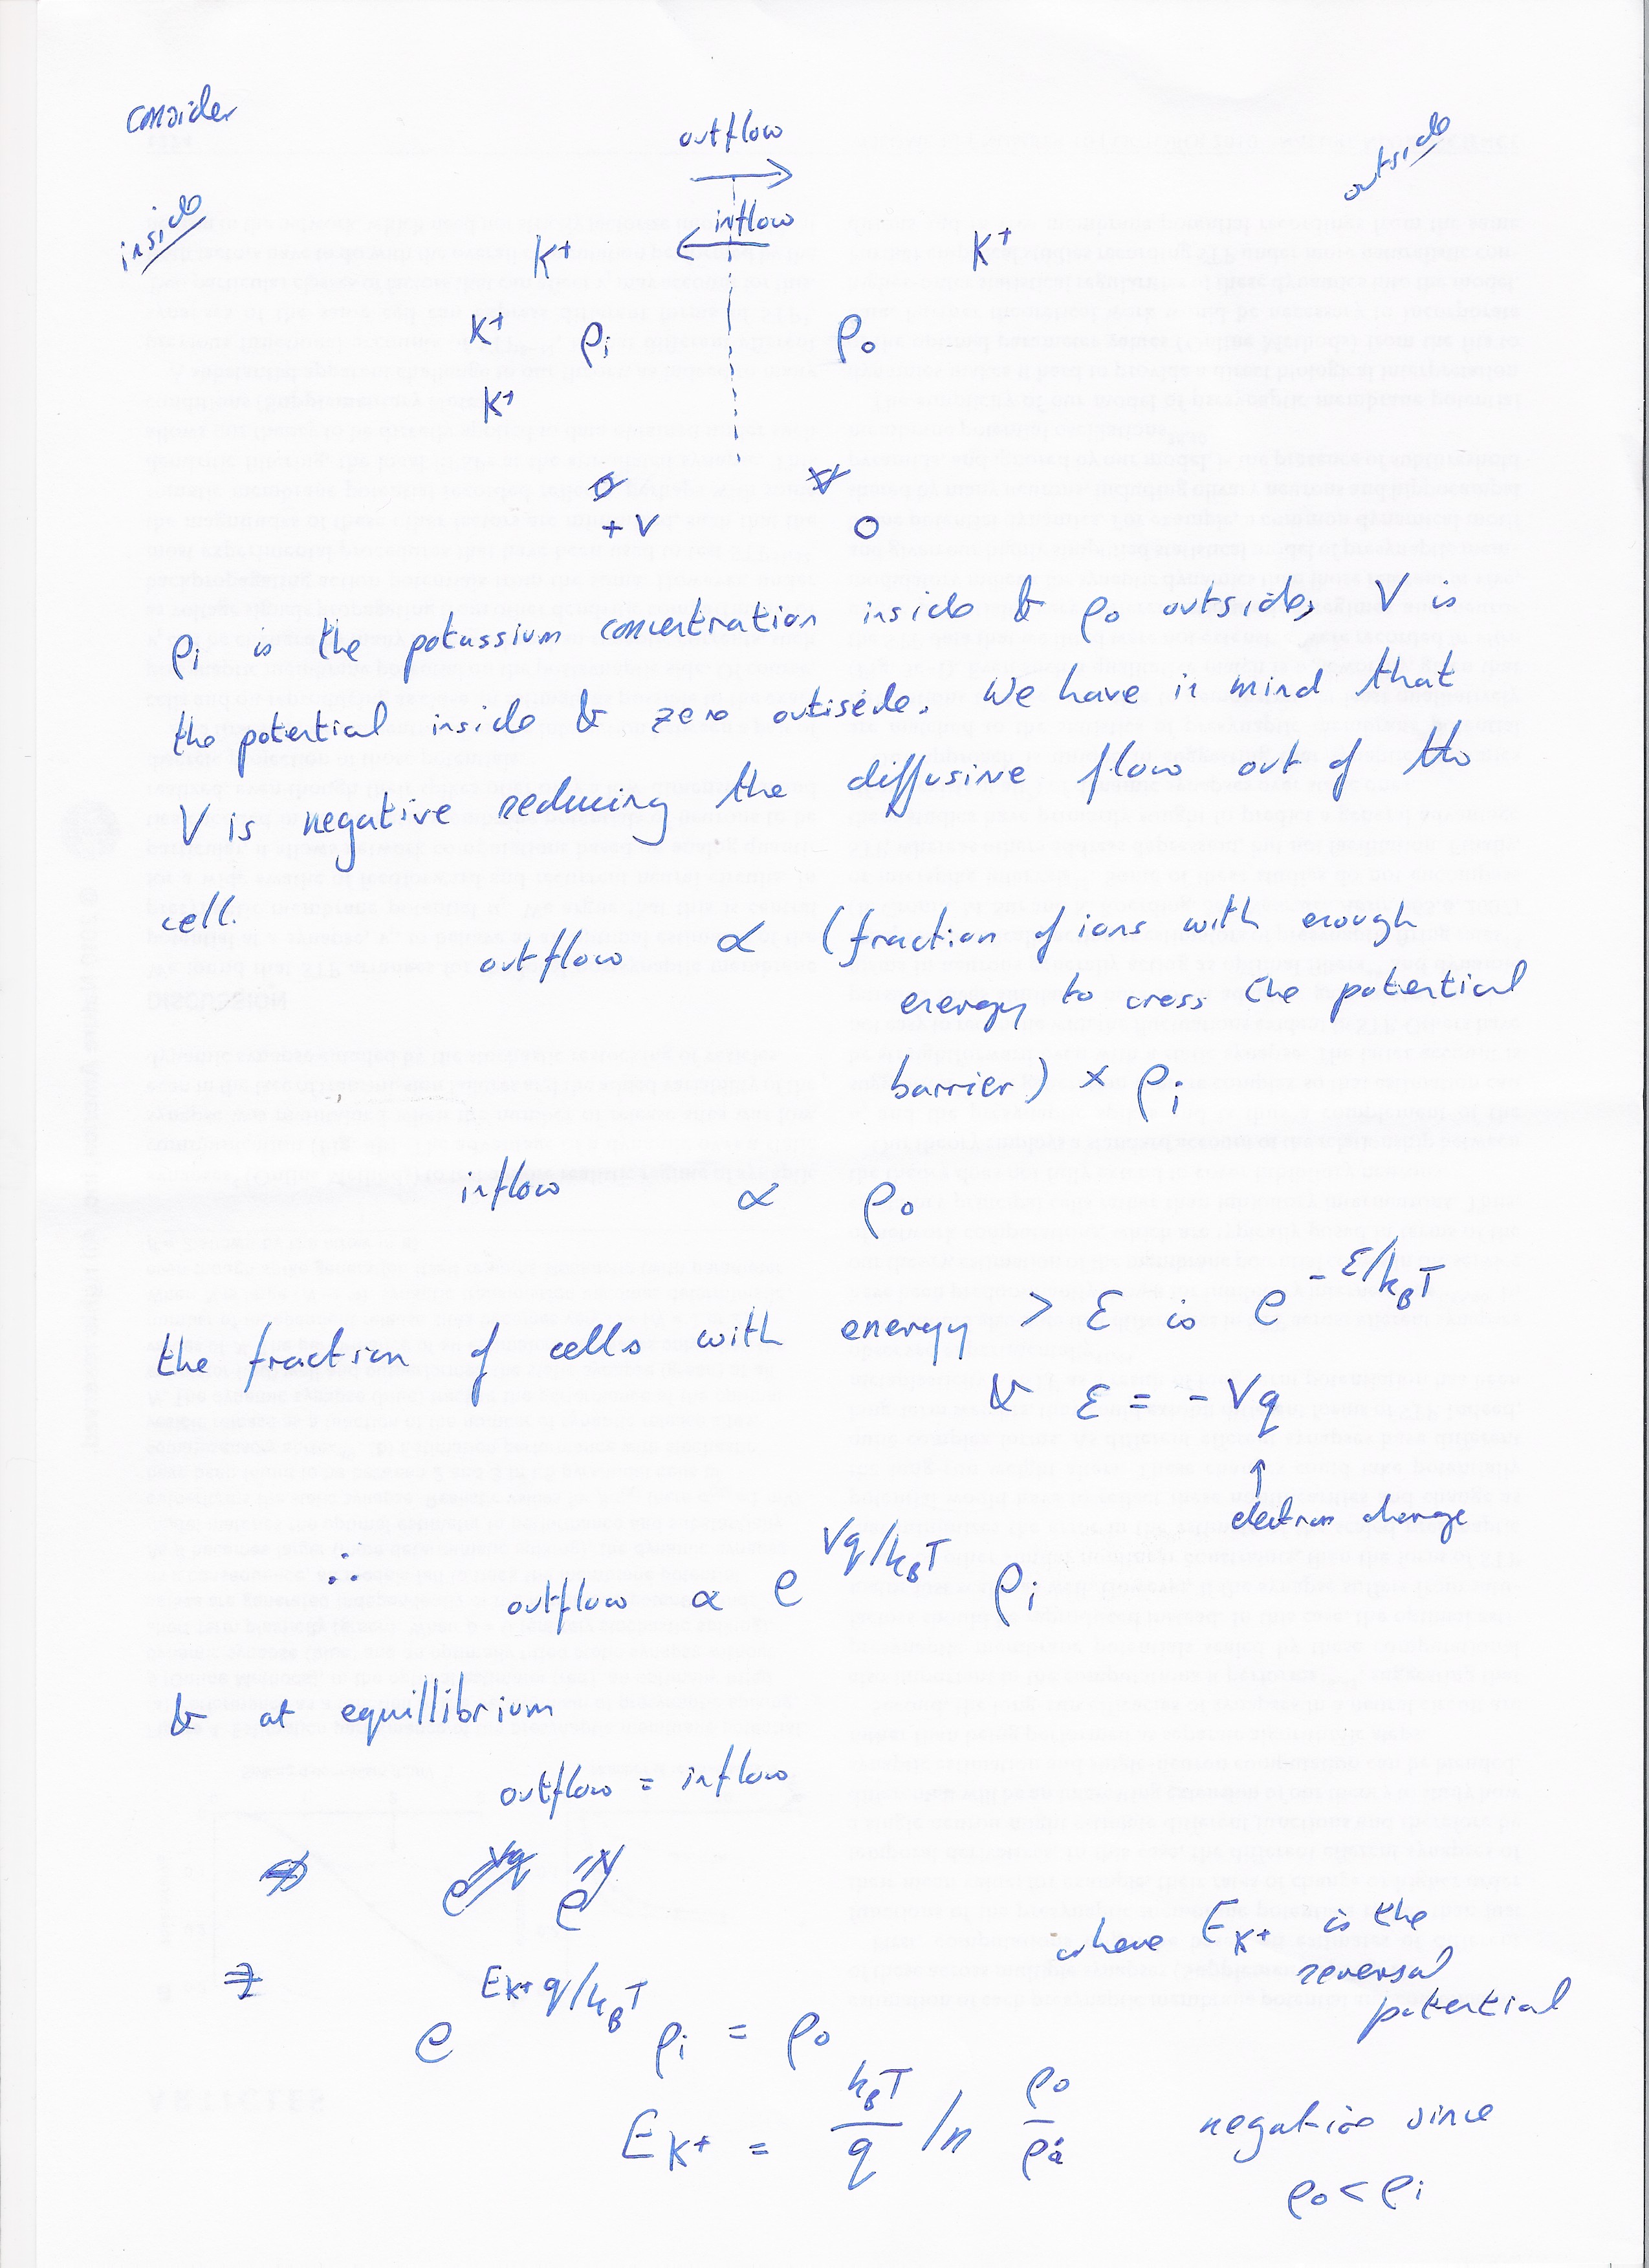 consider
outflow
outside
inside
inflow
K⁺ K⁺
K⁺ ρi ρo
K⁺
+V 0
ρi is the potassium concentration inside & ρo outside, V is
the potential inside & zero outiside. We have in mind that
V is negative reducing the diffusive flow out of the
cell.
outflow ∝ (fraction of ions with enough
energy to cross the potential
barrier) × ρi
inflow ∝ ρo
the fraction of cells with energy > ε is e^{-ε/k_BT}
& ε = -Vq
↑
electron charge
∴ outflow ∝ e^{Vq/k_BT} ρi
& at equillibrium
outflow = inflow
⇒ e^{E_{K⁺}q/k_BT} ρi = ρo
where E_{K⁺} is the
reversal
potential
E_{K⁺} = k_BT/q ln ρo/ρi
negative since
ρo < ρi